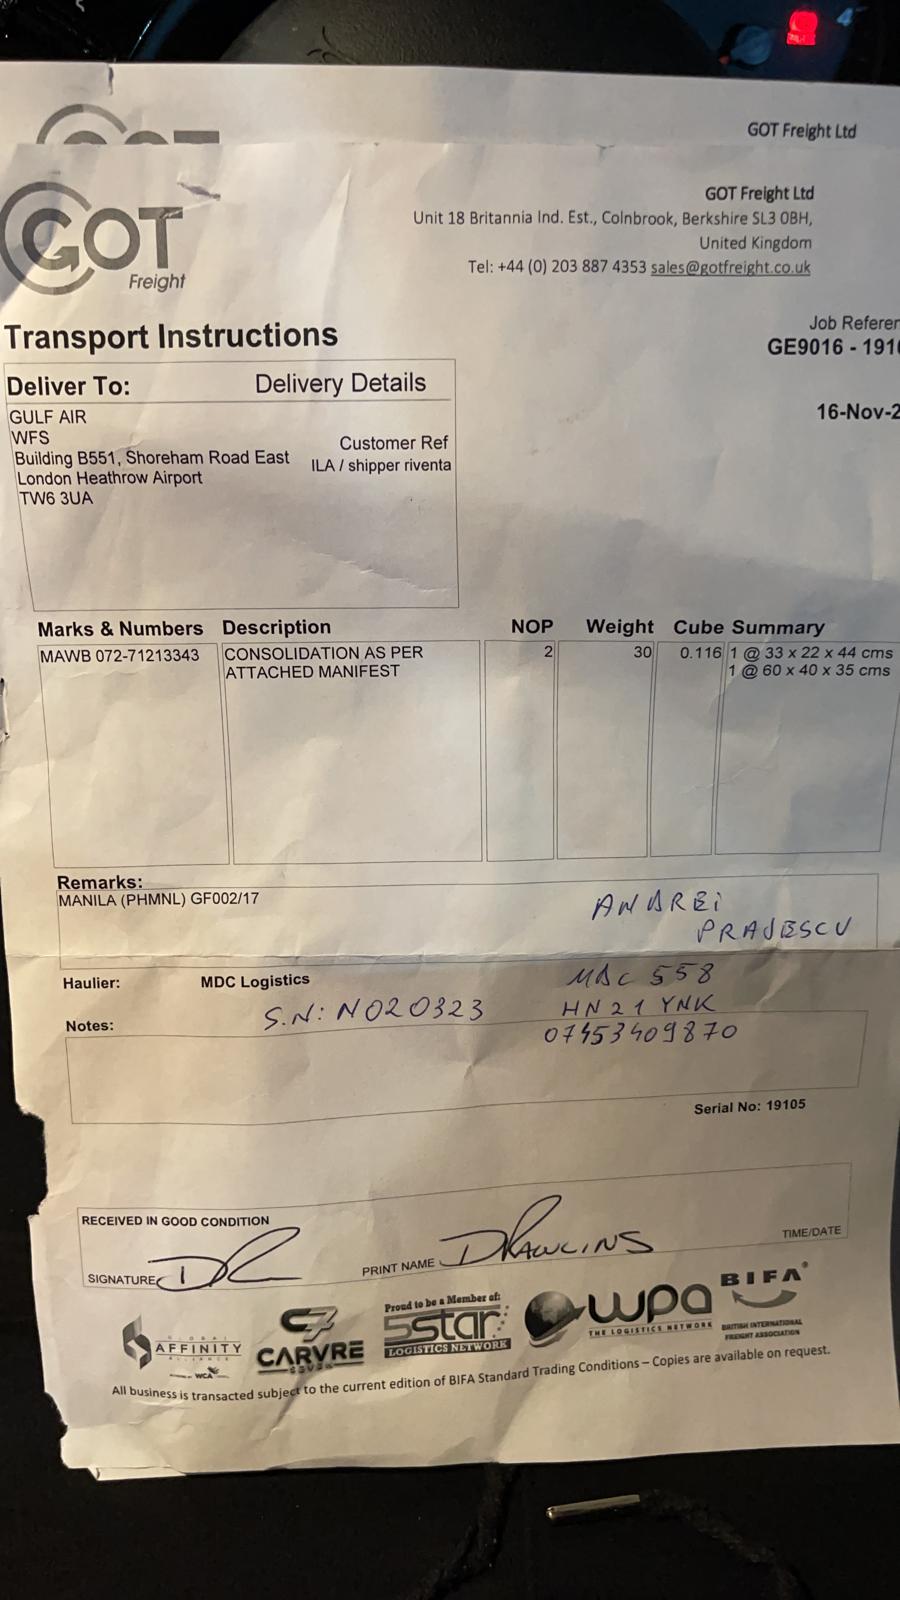 GOT Freight Ltd
GOT
Freight
GOT Freight Ltd
Unit 18 Britannia Ind. Est., Colnbrook, Berkshire SL3 0BH,
United Kingdom
Tel: +44 (0) 203 887 4353 sales@gotfreight.co.uk
Transport Instructions
Job Referen
GE9016 - 1910
16-Nov-2
Deliver To: Delivery Details
GULF AIR
WFS
Building B551, Shoreham Road East
London Heathrow Airport
TW6 3UA
Customer Ref
ILA / shipper riventa
Marks & Numbers Description NOP Weight Cube Summary
MAWB 072-71213343 CONSOLIDATION AS PER 2 30 0.116 1 @ 33 x 22 x 44 cms
ATTACHED MANIFEST 1 @ 60 x 40 x 35 cms
Remarks:
MANILA (PHMNL) GF002/17
ANDREI
PRAJESCU
Haulier: MDC Logistics
MDC 558
S.N: NO20323
HN21 YNK
Notes:
07453409870
Serial No: 19105
RECEIVED IN GOOD CONDITION
TIME/DATE
SIGNATURE
PRINT NAME DRAWLINS
GLOBAL
AFFINITY
ALLIANCE
WCA
C7
CARVRE
SEVEN
Proud to be a Member of:
5star
LOGISTICS NETWORK
wpa
THE LOGISTICS NETWORK
BIFA
BRITISH INTERNATIONAL
FREIGHT ASSOCIATION
All business is transacted subject to the current edition of BIFA Standard Trading Conditions – Copies are available on request.